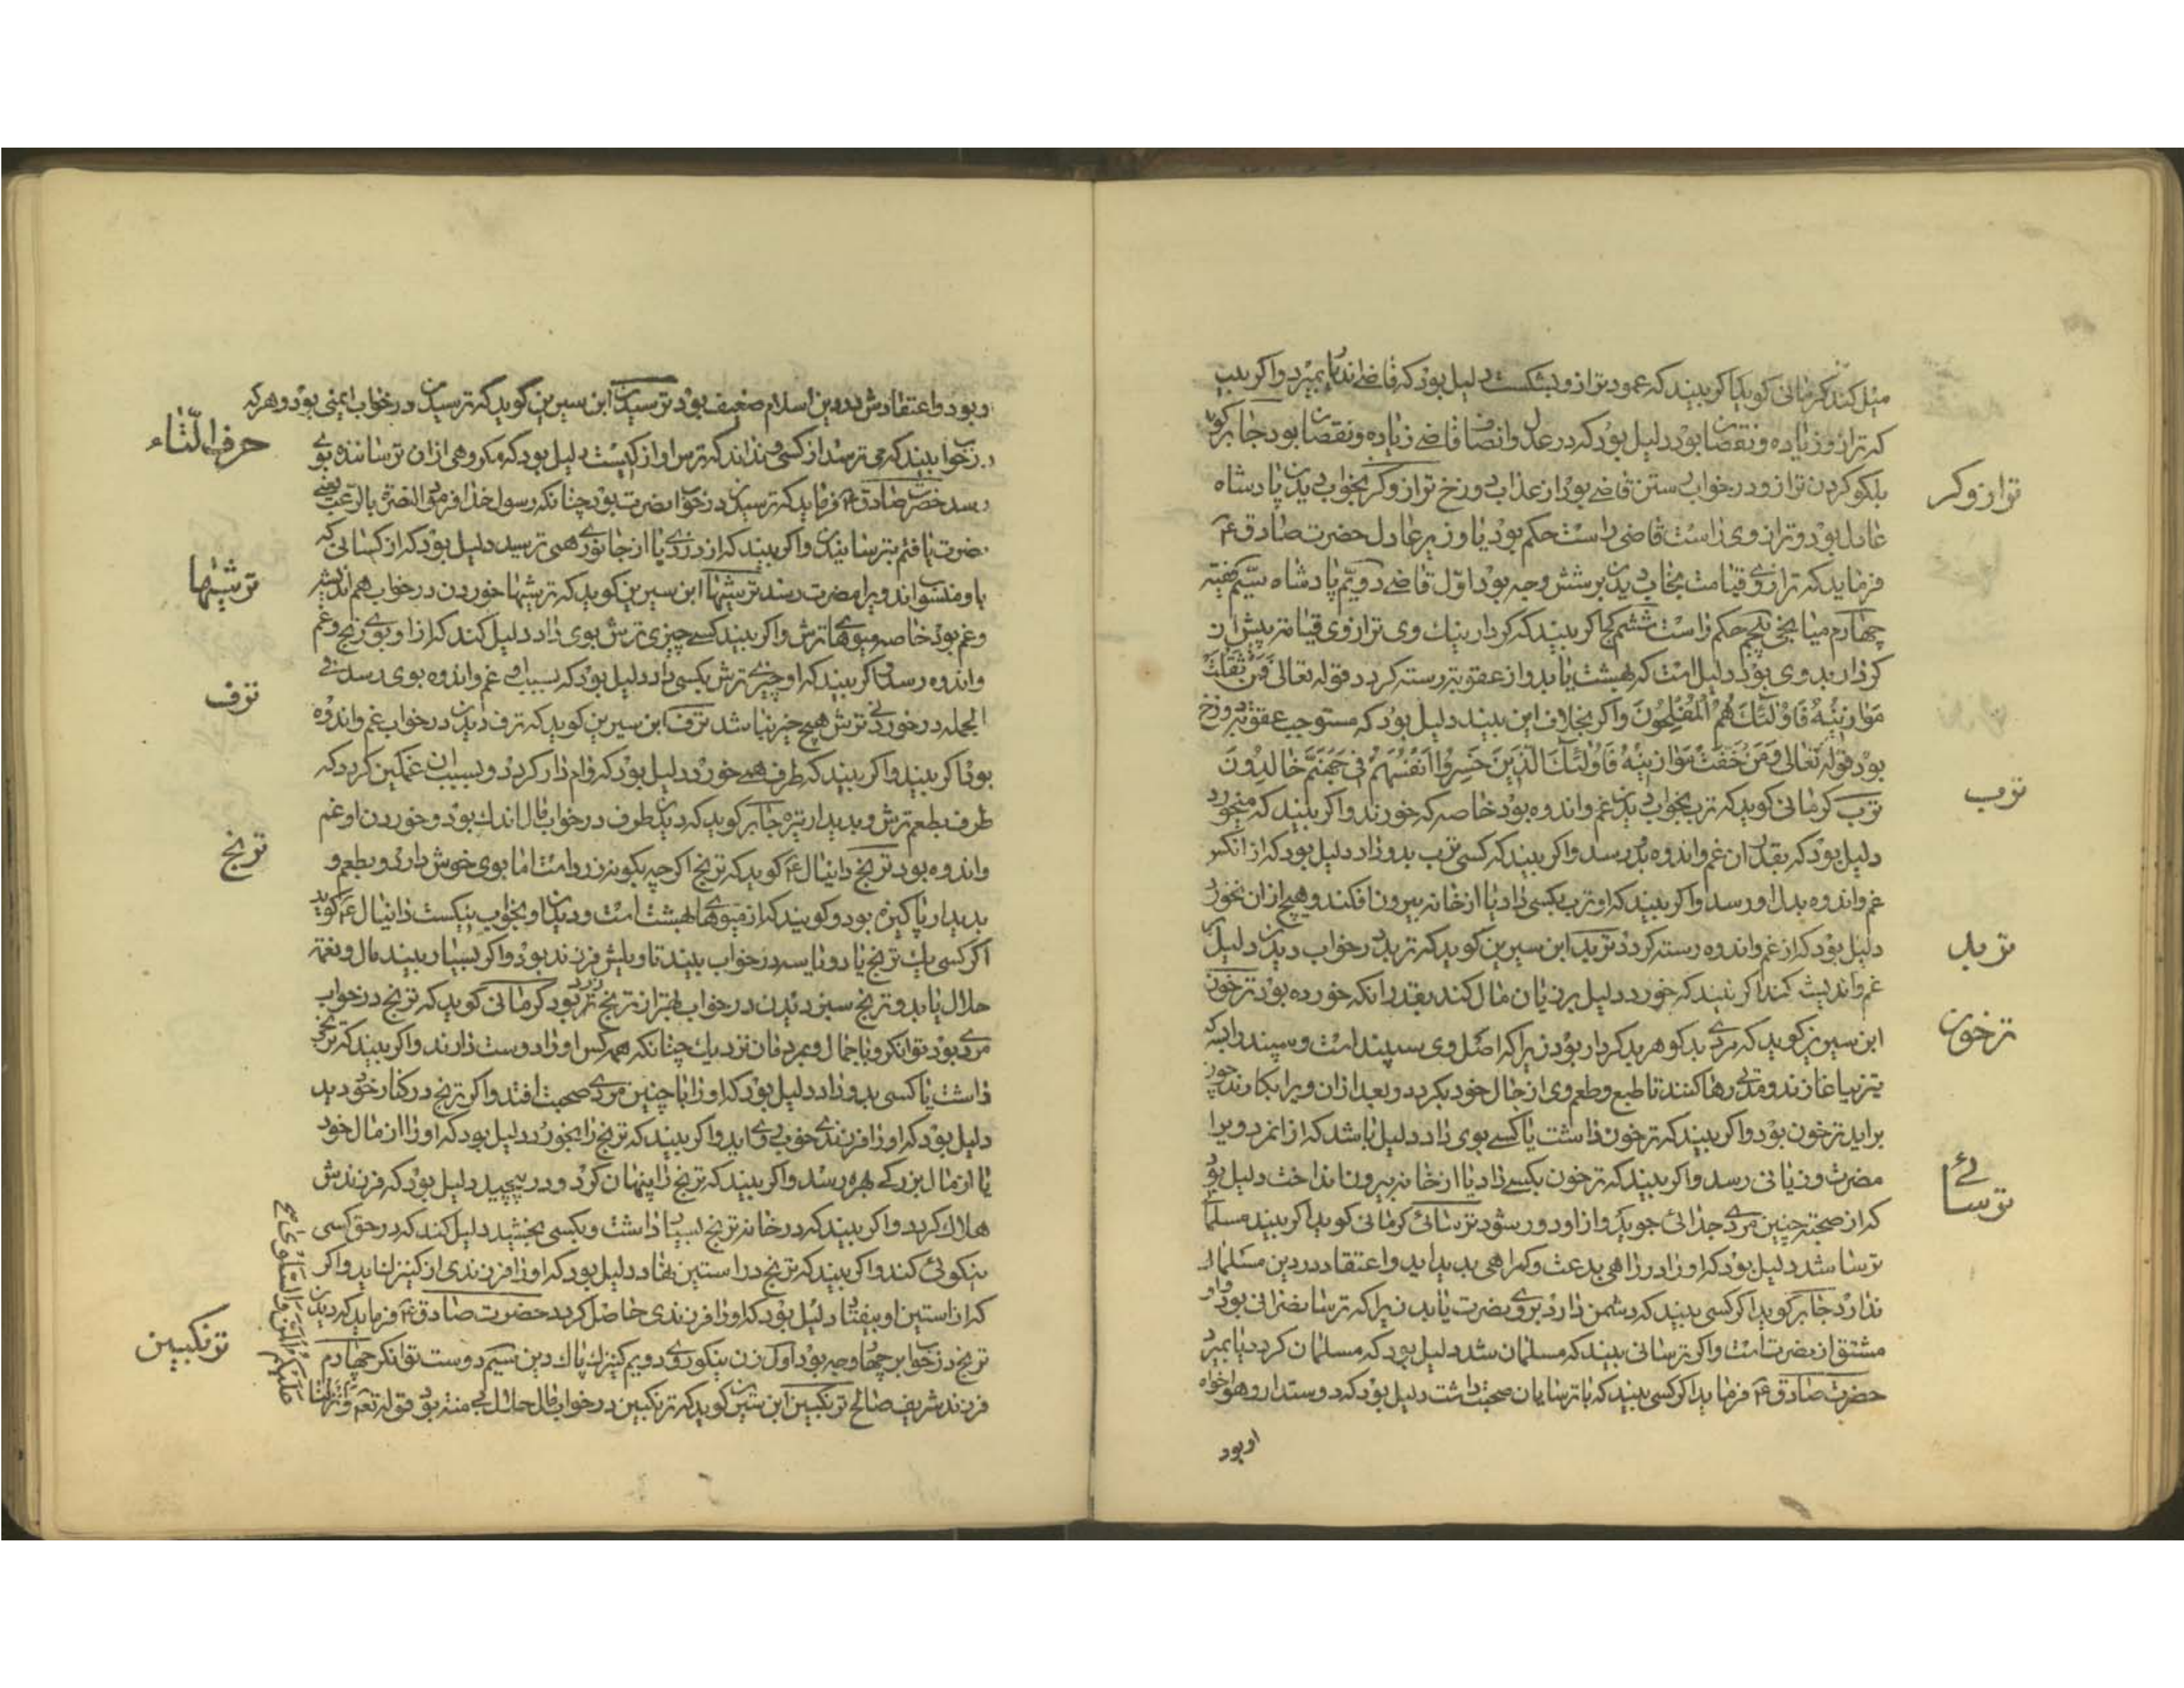 میل کند کرمانی کوید اکر بیند که عمود ترازو بشکست دلیل بود که قاضی بمیرد واکر بیند
که ترازو زیاده ونقصان بود دلیل بود که در عدل وانصاف قاضی زیاده ونقصان بود جابر کوید
ترازو در خواب قاضی بود از عذاب دوزخ ترازوکر بخواب دیدن پادشاه
ترازوکر
عادل بود وترازوی راست قاضی راست حکم بود یا وزیر عادل حضرت صادق ع
فرماید که ترازوی قیامت بخواب دیدن بر شش وجه بود اوّل قاضی دویّم پادشاه سیّم فقیه
چهارم میانجی پنجم حکم راست ششم اکر بیند که کردار نیك وی ترازوی قیامت پیش از
کردار بد وی بود دلیل است که بهشت یابد واز عقوبت رسته کردد قوله تعالی فَمَن ثَقُلَتْ
مَوَازِینُهُ فَاُولَئِكَ هُمُ الْمُفْلِحُونَ واکر بخلاف این بیند دلیل بود که مستوجب عقوبت دوزخ
بود قوله تعالی وَمَنْ خَفَّتْ مَوَازِینُهُ فَاُولَئِكَ الَّذِینَ خَسِرُوا اَنْفُسَهُمْ فِی جَهَنَّمَ خَالِدُونَ
ترب کرمانی کوید که ترب بخواب دیدن غم واندوه بود خاصه که خورند واکر بیند که میخورد
ترب
دلیل بود که بقدر ان غم واندوه بدو رسد واکر بیند که کسی ترب بدو داد دلیل بود که از انکس
غم واندوه بدل او رسد واکر بیند که او ترب بکسی داد یا از خانه بیرون افکند وهیچ از ان نخورد
دلیل بود که از غم واندوه رسته کردد تربد ابن سیرین کوید که تربد در خواب دیدن دلیل
تربد
غم واندیشه کند اکر بیند که خورد دلیل بر زیان مال کند بقدر انکه خورده بود ترخون
ترخون
ابن سیرین کوید که مردی بدکوهر بدکردار بود زیرا که اصل وی سپند است وسپند را بسرکه
رها کنند تا طبع وطعم وی از حال خود بکردد وبعد از ان ویرا بکارند چون
براید ترخون بود واکر بیند که ترخون داشت یا کسی بوی داد دلیل باشد که از انمرد ویرا
مضرت وزیانی رسد واکر بیند که ترخون بکسی داد یا از خانه بیرون انداخت دلیل بود
که از صحبت چنین مردی جدائی جوید واز او دور شود ترسائی کرمانی کوید اکر بیند مسلمانی
ترسائی
ترسا شد دلیل بود که او را در راهی بدعت وکمراهی پدید اید واعتقاد در دین مسلمانی
ندارد جابر کوید اکر کسی بیند که دشمن دارد بر وی نصرت یابد زیرا که ترسا نصرانی بود واو
مشتق از نصرت است واکر ترسائی بیند که مسلمان شد دلیل بود که مسلمان کردد یا بمیرد
حضرت صادق ع فرماید اکر کسی بیند که با ترسایان صحبت داشت دلیل بود که دوستدار وهواخواه
او بود
وبود واعتقادش در دین اسلام ضعیف بود ترسیدن ابن سیرین کوید که ترسیدن در خواب ایمنی بود وهرکه
حرف التّاء
در خواب بیند که می ترسد از کسی ونداند که ترس او از کیست دلیل بود که مکروهی از ان ترساننده بوی
رسد حضرت صادق ع فرماید که ترسیدن در خواب نصرت بود چنانکه رسول خدا فرمود النصرة بالرّعب یعنی
نصرت یافتم بترسانیدن واکر بیند که از دزدی یا از جانوری همی ترسید دلیل بود که از کسانی که
باو منسوباند ویرا مضرت رسد ترشیها ابن سیرین کوید که ترشیها خوردن در خواب هم اندیشه
ترشیها
وغم بود خاصه میوهای ترش واکر بیند کسی چیزی ترش بوی داد دلیل کند که از او بوی رنج وغم
واندوه رسد واکر بیند که او چیزی ترش بکسی داد دلیل بود که بسبب او غم واندوه بوی رسد فی
الجمله در خوردن ترش هیچ خیر نباشد ترف ابن سیرین کوید که ترف دیدن در خواب غم واندوه
ترف
بود اکر بیند واکر بیند که طرف همی خورد دلیل بود که وام دار کردد وبسبب ان غمکین کردد که
طرف بطعم ترش وبدیدار تیره جابر کوید که دیدن طرف در خواب مال اندك بود وخوردن او غم
واندوه بود ترنج دانیال ع کوید که ترنج اکرچه بکونه زرد است اما بوی خوش دارد وبطعم و
ترنج
بدیدار پاکیزه بود وکویند که از میوهای بهشت است ودیدن او بخواب نیکست دانیال ع کوید
اکر کسی یك ترنج یا دو یا سه در خواب بیند تاویلش فرزند بود واکر بسیار بیند مال ونعمة
حلال یابد وترنج سبز دیدن در خواب بهتر از ترنج زرد بود کرمانی کوید که ترنج در خواب
مردی بود توانکر وباجمال وبمردمان نزدیك چنانکه همه کس او را دوست دارند واکر بیند که ترنج
داشت یا کسی بدو داد دلیل بود که او را با چنین مردی صحبت افتد واکر ترنج در کنار خود دید
دلیل بود که او را فرزندی خوب روی اید واکر بیند که ترنج را بخورد دلیل بود که او را از مال خود
یا از مال بزرکی بهره رسد واکر بیند که ترنج را پنهان کرد ودر پیچید دلیل بود که فرزندش
هلاك کردد واکر بیند که در خانه ترنج بسیار داشت وبکسی بخشید دلیل کند که در حق کسی
نیکوئی کند واکر بیند که ترنج در استین نهاد دلیل بود که او را فرزندی از کنیزك اید واکر
که از استین او بیفتاد دلیل بود که او را فرزندی حاصل کردد حضرت صادق ع فرماید که دیدن
ترنج در خواب بر چهار وجه بود اوّل زن نیکوروی دویم کنیزك پاك دین سیّم دوست توانکر چهارم
ترنکبین
فرزند شریف صالح ترنکبین ابن سیرین کوید که ترنکبین در خواب مال حلال بی منت بود قوله تعم وَاَنْزَلْنَا
عَلَیْکُمُ الْمَنَّ وَالسَّلْوَی